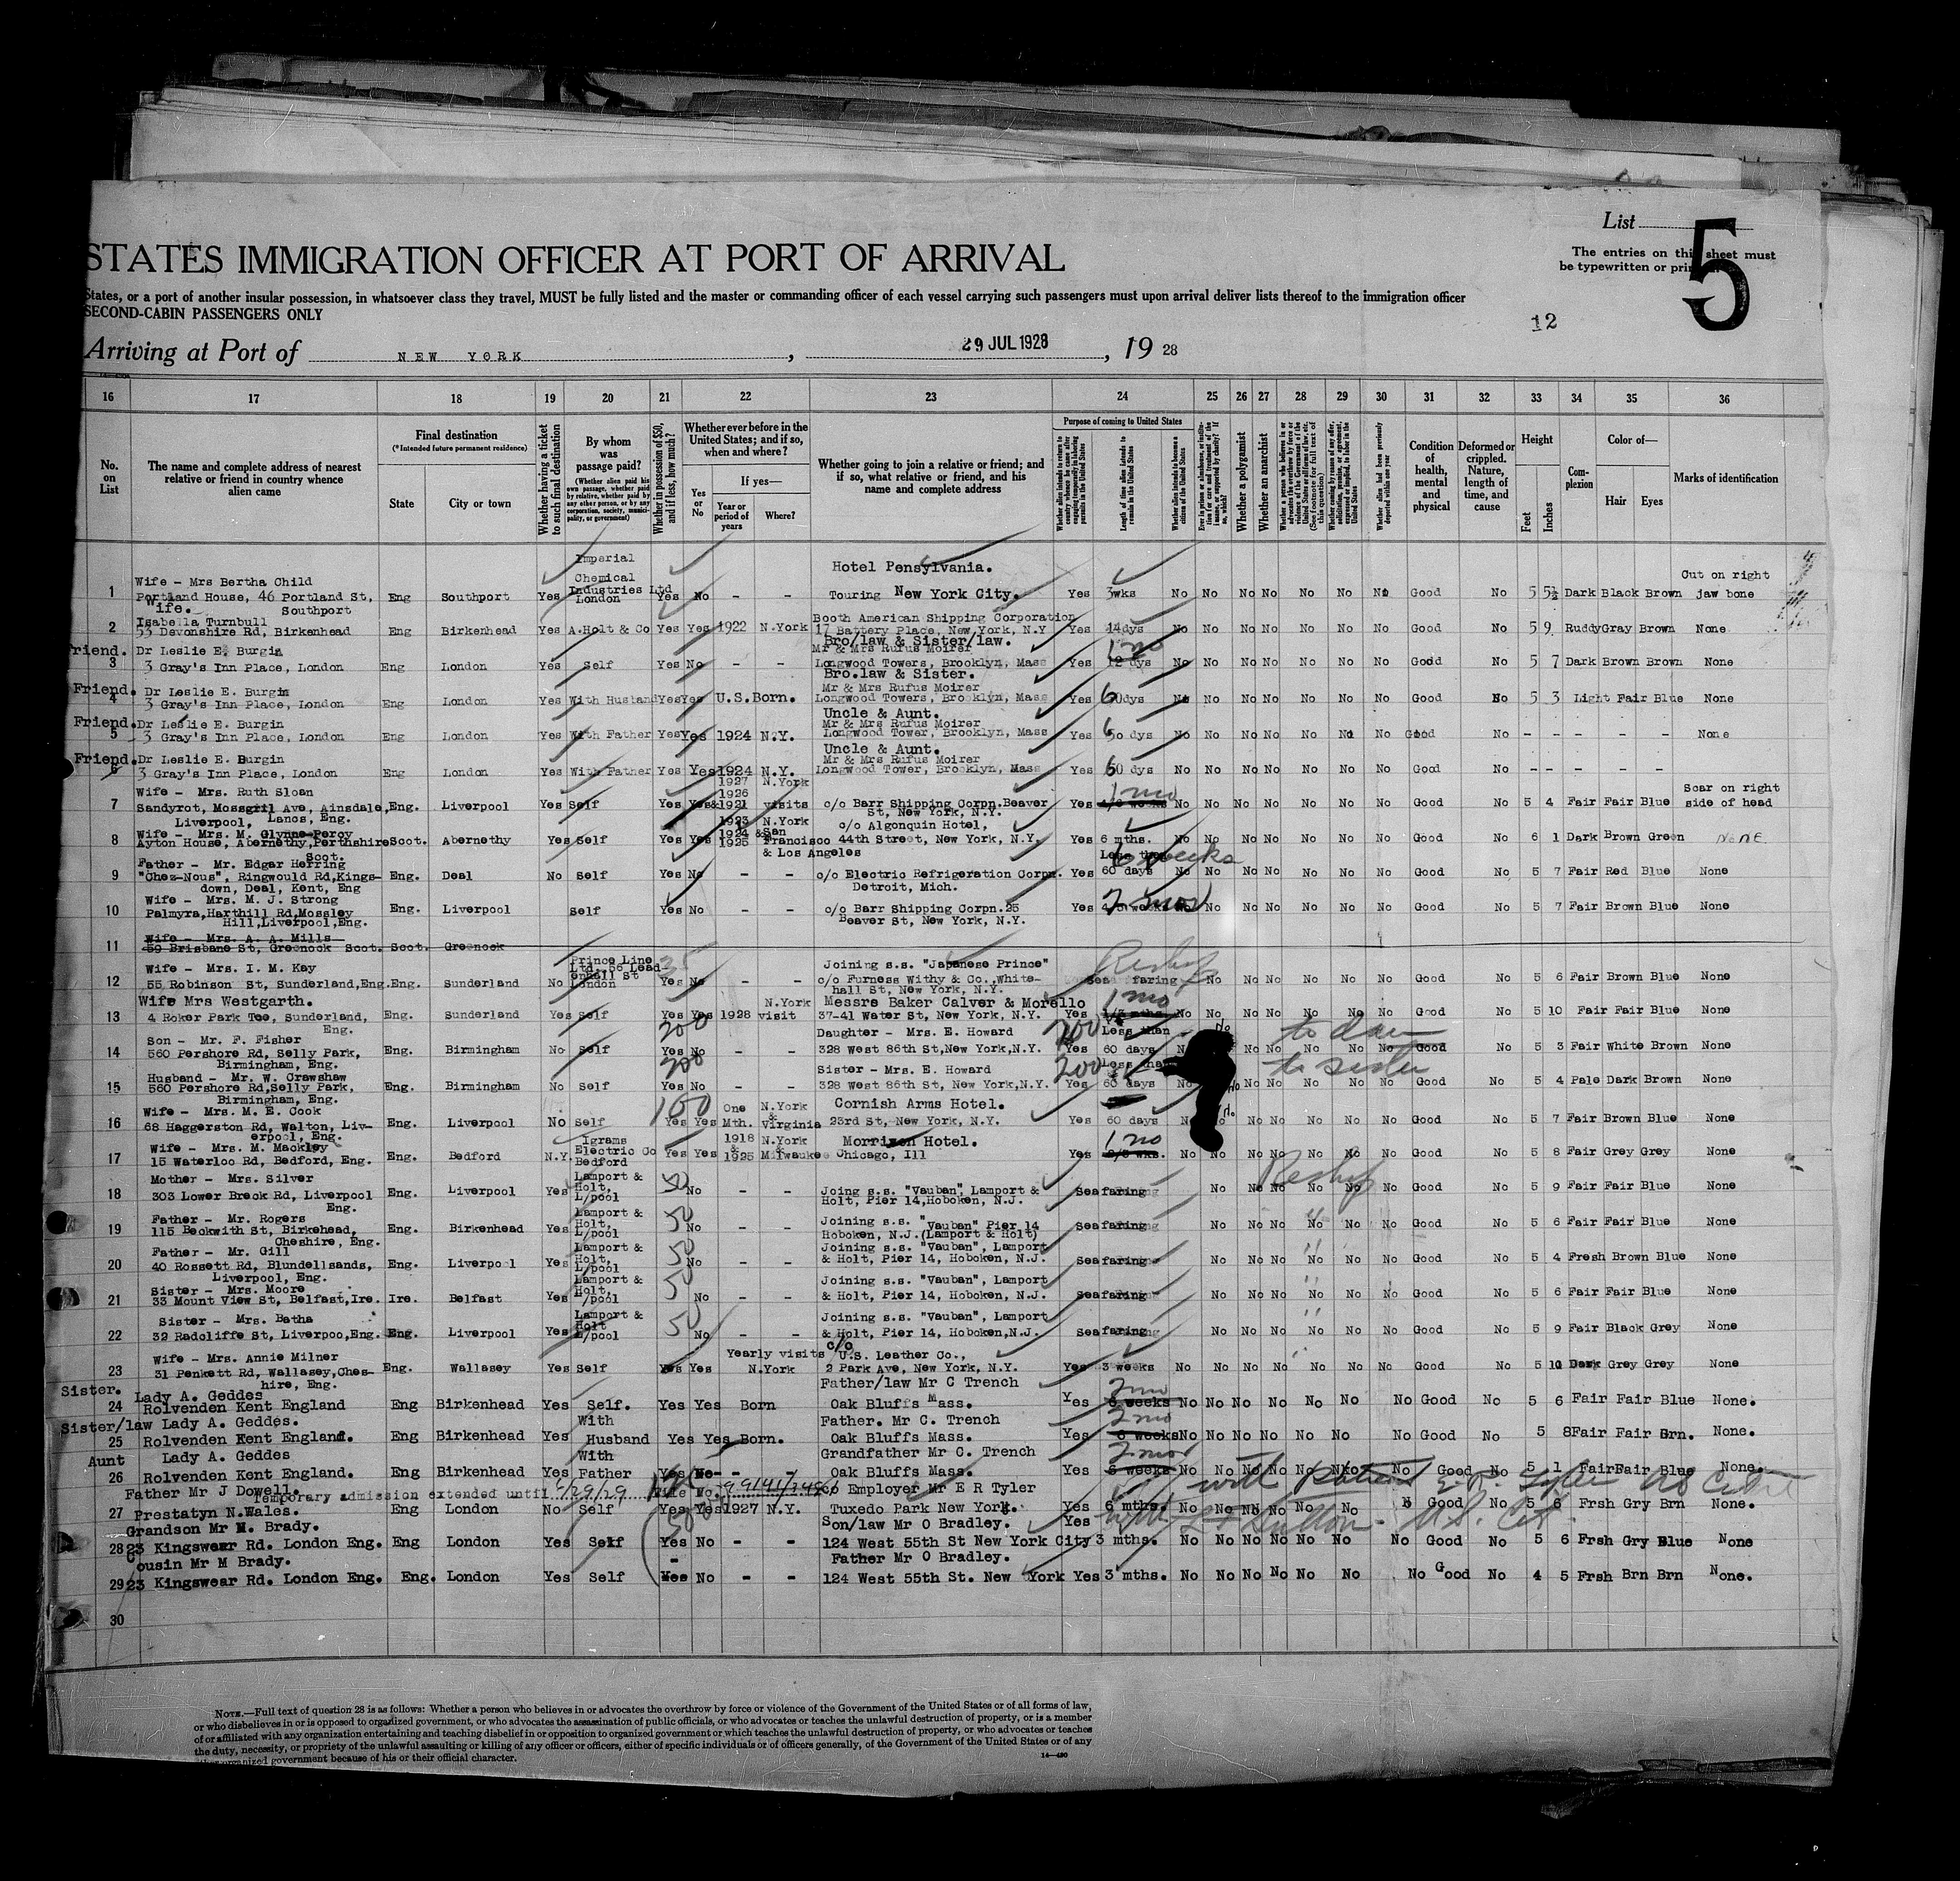 List
5
The entries on this sheet must
be typewritten or
12
STATES IMMIGRATION OFFICER AT PORT OF ARRIVAL
States, or a port of another insular possession, in whatsoever class they travel, MUST be fully listed and the master or commanding officer of each vessel carrying such passengers must upon arrival deliver lists thereof to the immigration officer
SECOND-CABIN PASSENGERS ONLY
Arriving at Port of NEW YORK, 29 JUL 1928, 19 28
16 17 18 19 20 21 22 23 24 25 26 27 28 29 30 31 32 33 34 35 36
No. on List
The name and complete address of nearest relative or friend in country whence alien came
Final destination
(*Intended future permanent residence)
State
City or town
Whether having a ticket to such final destination
By whom was passage paid?
(Whether alien paid his own passage, whether paid by relative, whether paid by any other person, or by any corporation, society, municipality, or government)
Whether in possession of $50, and if less, how much?
Whether ever before in the United States; and if so, when and where?
Yes or No
If yes—
Year or period of years
Where?
Whether going to join a relative or friend; and if so, what relative or friend, and his name and complete address
Purpose of coming to United States
Length of time alien intends to remain in the United States
Whether alien intends to become a citizen of the United States
Whether a polygamist
Whether an anarchist
Condition of health, mental and physical
Deformed or crippled. Nature, length of time, and cause
Height
Feet
Inches
Complexion
Color of—
Hair
Eyes
Marks of identification
1 Wife - Mrs Bertha Child
Portland House, 46 Portland St, Southport Eng Southport Yes Imperial Chemical Industries Ltd London Yes No - - Hotel Pensylvania. Touring New York City. Yes 3wks No No No No No No No Good No 5 5½ Dark Black Brown Cut on right jaw bone
Wife.
2 Isabella Turnbull
53 Devonshire Rd, Birkenhead Eng Birkenhead Yes A.Holt & Co Yes Yes 1922 N.York Booth American Shipping Corporation 17 Battery Place, New York, N.Y Yes 14dys No No No No No No No Good No 5 9 Ruddy Gray Brown None
Friend. Dr Leslie E. Burgin Bro/law & Sister/law.
3 3 Gray's Inn Place, London Eng London Yes Self Yes No - - Mr & Mrs Rufus Moirer Longwood Towers, Brooklyn, Mass Yes 12 dys 1 mo No No No No No No No Good No 5 7 Dark Brown Brown None
Friend. Dr Leslie E. Burgin Bro.law & Sister.
4 3 Gray's Inn Place, London Eng London Yes With Husband Yes Yes U.S.Born. Mr & Mrs Rufus Moirer Longwood Towers, Brooklyn, Mass Yes 60dys No No No No No No No Good No 5 3 Light Fair Blue None
Friend. Dr Leslie E. Burgin Uncle & Aunt.
5 3 Gray's Inn Place, London Eng London Yes With Father Yes Yes 1924 N.Y. Mr & Mrs Rufus Moirer Longwood Tower, Brooklyn, Mass Yes 60 dys No No No No No No No Good No - - - - - None
Friend. Dr Leslie E. Burgin Uncle & Aunt.
6 3 Gray's Inn Place, London Eng London Yes With Father Yes Yes 1924 N.Y. Mr & Mrs Rufus Moirer Longwood Tower, Brooklyn, Mass Yes 60 dys No No No No No No No Good No - - - - -
7 Wife - Mrs. Ruth Sloan
Sandyrot, Mossgril Ave, Ainsdale, Liverpool, Lancs, Eng. Eng. Liverpool Yes Self Yes Yes 1927 1926 &1921 N.York visits c/o Barr Shipping Corpn.Beaver St, New York, N.Y. Yes 1 mo No No No No No No No Good No 5 4 Fair Fair Blue Scar on right side of head
8 Wife - Mrs. M. Glynne-Percy
Ayton House, Abernethy, Perthshire Scot. Scot. Abernethy Yes Self Yes Yes 1923 1924 & 1925 N.York San Francisco & Los Angeles c/o Algonquin Hotel, 44th Street, New York, N.Y. Yes 6 mths. No No No No No No No Good No 6 1 Dark Brown Green NONE
9 Father - Mr. Edgar Herring
"Chez-Nous", Ringwould Rd, Kingsdown, Deal, Kent, Eng Eng. Deal No Self Yes No - - c/o Electric Refrigeration Corpn. Detroit, Mich. Yes Less than 60 days 6 weeks No No No No No No No Good No 5 7 Fair Red Blue None
10 Wife - Mrs. M. J. Strong
Palmyra, Harthill Rd, Mossley Hill, Liverpool, Eng. Eng. Liverpool Self Yes No - - c/o Barr Shipping Corpn.25 Beaver St, New York, N.Y. Yes 4/5 weeks 2 mos No No No No No No No Good No 5 7 Fair Brown Blue None
11 Wife - Mrs. A. A. Mills
59 Brisbane St, Greenock Scot. Scot. Greenock
12 Wife - Mrs. I. M. Kay
55 Robinson St, Sunderland, Eng. Eng. Sunderland No Prince Line Ltd. 56 Leadenhall St London 25 Yes No - - Joining s.s. "Japanese Prince" c/o Furness Withy & Co., Whitehall St, New York, N.Y. Sea faring Reship No No No No No No Good No 5 6 Fair Brown Blue None
13 Wife Mrs Westgarth.
4 Roker Park Tce, Sunderland, Eng. Eng. Sunderland Yes Self Yes Yes 1928 N.York visit Messrs Baker Calver & Morello 37-41 Water St, New York, N.Y. Yes 1 mo No No No No No No No Good No 5 10 Fair Fair Blue None
14 Son - Mr. F. Fisher
560 Pershore Rd, Selly Park, Birmingham, Eng. Eng. Birmingham No Self 200 Yes No - - Daughter - Mrs. E. Howard 328 West 86th St, New York, N.Y. 200 Yes Less than 60 days No No No No No No to dau Good No 5 3 Fair White Brown None
15 Husband - Mr. W. Crawshaw
560 Pershore Rd, Selly Park, Birmingham, Eng. Eng. Birmingham No Self 200 Yes No - - Sister - Mrs. E. Howard 328 West 86th St, New York, N.Y. 200 Yes Less than 60 days No No No No No No No to sister Good No 5 4 Pale Dark Brown None
16 Wife - Mrs. M. E. Cook
68 Haggerston Rd, Walton, Liverpool, Eng. Eng. Liverpool No Self 100 Yes Yes One Mth. N.York & Virginia Cornish Arms Hotel. 23rd St, New York, N.Y. Yes 60 days No No No No No No Good No 5 7 Fair Brown Blue None
17 Wife - Mrs. M. Mackley
15 Waterloo Rd, Bedford, Eng. Eng. Bedford N.Y. Igrams Electric Co Bedford Yes Yes 1918 & 1925 N.York & Milwaukee Morrison Hotel. Chicago, Ill Yes 1 mo No No No No No No No Good No 5 8 Fair Grey Grey None
18 Mother - Mrs. Silver
303 Lower Breck Rd, Liverpool Eng. Eng. Liverpool Yes Lamport & Holt, L/pool 50 No - - Joing s.s. "Vauban", Lamport & Holt, Pier 14, Hoboken, N.J. Seafaring Reship No No No No No No Good No 5 9 Fair Fair Blue None
19 Father - Mr. Rogers
115 Beckwith St, Birkehead, Cheshire, Eng. Eng. Birkenhead Yes Lamport & Holt, L/pool 50 No - - Joining s.s. "Vauban" Pier 14 Hoboken, N.J. (Lamport & Holt) Seafaring " No No No No No No Good No 5 6 Fair Fair Blue None
20 Father - Mr. Gill
40 Rossett Rd, Blundellsands, Liverpool, Eng. Eng. Liverpool Yes Lamport & Holt, L/pool 50 No - - Joining s.s. "Vauban", Lamport & Holt, Pier 14, Hoboken, N.J. Seafaring " No No No No No No Good No 5 4 Fresh Brown Blue None
21 Sister - Mrs. Moore
33 Mount View St, Belfast, Ire. Ire. Belfast Yes Lamport & Holt, L/pool 50 No - - Joining s.s. "Vauban", Lamport & Holt, Pier 14, Hoboken, N.J. Seafaring " No No No No No No Good No 5 6 Fair Fair Blue None
22 Sister - Mrs. Batha
32 Radcliffe St, Liverpoo, Eng. Eng. Liverpool Yes Lamport & Holt L/pool 50 No - - Joining s.s. "Vauban", Lamport & Holt, Pier 14, Hoboken, N.J. Seafaring " No No No No No No Good No 5 9 Fair Black Grey None
23 Wife - Mrs. Annie Milner
31 Penkett Rd, Wallasey, Cheshire, Eng. Eng. Wallasey Yes Self Yes Yes Yearly visits N.York c/o U.S. Leather Co., 2 Park Ave, New York, N.Y. Yes 3 weeks No No No No No No No Good No 5 10 Dark Grey Grey None
Sister. Lady A. Geddes Father/law Mr C Trench
24 Rolvenden Kent England Eng Birkenhead Yes Self. Yes Yes Born Oak Bluffs Mass. Yes 6 weeks 2 mo No No No No No No No Good No 5 6 Fair Fair Blue None.
Sister/law Lady A. Geddes. Father. Mr C. Trench
25 Rolvenden Kent England. Eng Birkenhead Yes With Husband Yes Yes Born. Oak Bluffs Mass. Yes 6 weeks 2 mo No No No No No No No Good No 5 8 Fair Fair Brn. None.
Aunt Lady A. Geddes Grandfather Mr C. Trench
26 Rolvenden Kent England. Eng Birkenhead Yes With Father Yes No - - Oak Bluffs Mass. Yes 6 weeks 2 mos No No No No No No No Good No 5 1 Fair Fair Blue None.
Father Mr J Dowell. Temporary admission extended until File No. Employer Mr E R Tyler with
27 Prestatyn N.Wales. Eng London No Self Yes Yes 1927 N.Y. Tuxedo Park New York. Yes 6 mths. No No No No No No Good No 5 6 Frsh Gry Brn None.
Grandson Mr M. Brady. 500 Son/law Mr O Bradley. Yes
28 23 Kingswear Rd. London Eng. Eng London Yes Self Yes No - - 124 West 55th St New York City 3 mths. No No No No No No No Good No 5 6 Frsh Gry Blue None
Cousin Mr M Brady. Father Mr O Bradley.
29 23 Kingswear Rd. London Eng. Eng. London Yes Self Yes No - - 124 West 55th St. New York Yes 3 mths. No No No No No No No Good No 4 5 Frsh Brn Brn None.
30
NOTE.—Full text of question 28 is as follows: Whether a person who believes in or advocates the overthrow by force or violence of the Government of the United States or of all forms of law,
or who disbelieves in or is opposed to organized government, or who advocates the assassination of public officials, or who advocates or teaches the unlawful destruction of property, or is a member
of or affiliated with any organization entertaining and teaching disbelief in or opposition to organized government or which teaches the unlawful destruction of property, or who advocates or teaches
the duty, necessity, or propriety of the unlawful assaulting or killing of any officer or officers, either of specific individuals or of officers generally, of the Government of the United States or of any
organized government because of his or their official character.
14—490